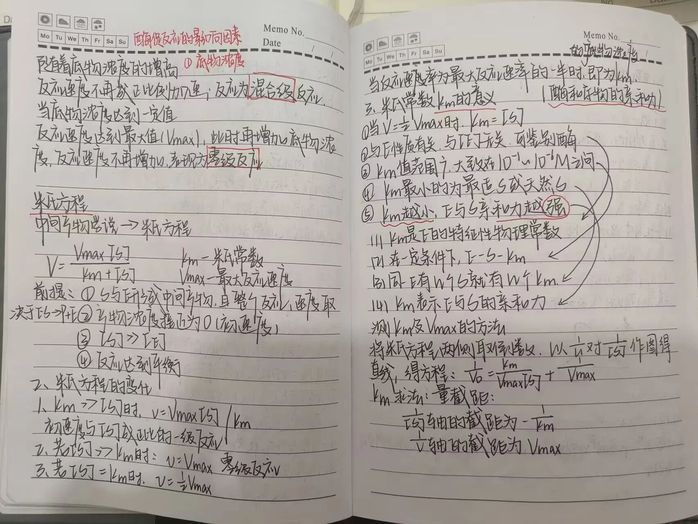 Memo No.
Mo Tu We Th Fr Sa Su
Date
酶促反应的影响因素
① 底物浓度
随着底物浓度的增高
反应速度不再成正比例加速，反应为混合级反应.
当底物浓度达到一定值
反应速度达到最大值(Vmax)，此时再增加底物浓
度，反应速度不再增加，表现为零级反应
米氏方程
中间产物学说 → 米氏方程
V = Vmax[S] / Km+[S]
Km—米氏常数
Vmax—最大反应速度
前提：① S与E形成中间产物，自整个反应，速度取
决于ES→P+E ② 产物浓度接近为0(初速度)
③ [S] >> [E]
④ 反应达到平衡
2、米氏方程的变化
1. Km >> [S]时，v = Vmax[S] / Km
初速度与[S]成正比的一级反应
2. 若[S] >> Km时：v = Vmax 零级反应
3. 若[S] = Km时. v = ½Vmax
Memo No.
Mo Tu We Th Fr Sa Su
Date
当反应速率为最大反应速率的一半时，即为Km.
三、米氏常数Km的意义
酶和底物的亲和力
①当V=½Vmax时. Km=[S]
②与E性质有关，与[E]无关，可鉴别酶
③ Km值范围广，大致在10⁻¹~10⁻⁶M之间
④ Km最小的为最适S或天然S
⑤ Km越小，E与S亲和力越强
(1) Km是E的特征性物理常数
(2) 在一定条件下，E-S-Km
(3) 同E有n个S就有n个Km.
(4) Km表示E与S的亲和力
测Km及Vmax的方法
将米氏方程两侧取倒数，以 1/v 对 1/[S] 作图得
直线，得方程：1/V₀ = Km/Vmax[S] + 1/Vmax
Km求法：量截距：
1/[S]轴的截距为 -1/Km
1/V轴的截距为 Vmax